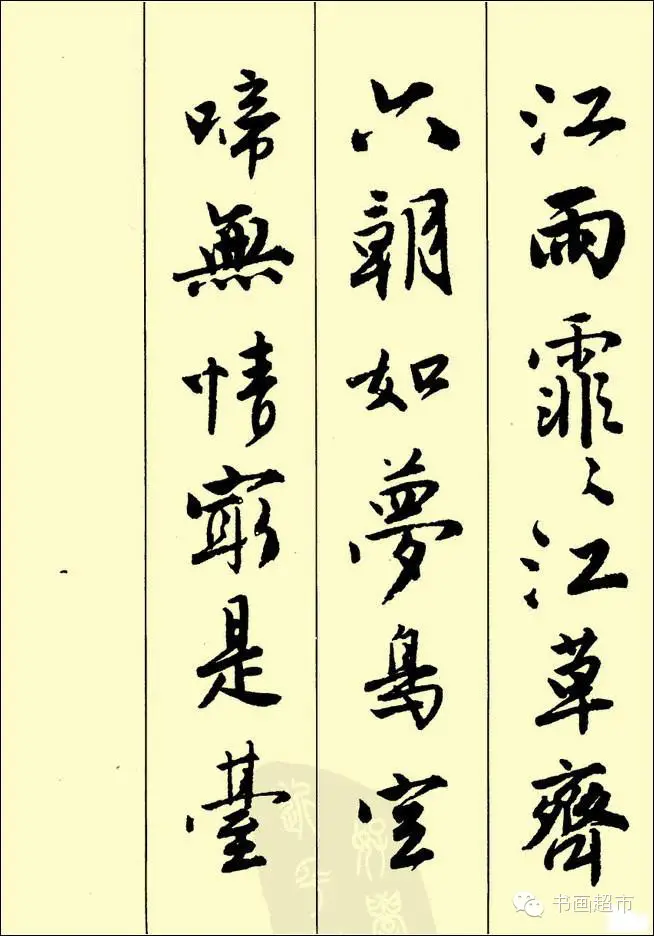 江雨霏〻江草齊
六朝如夢鳥空
啼無情㝡是臺
书画超市